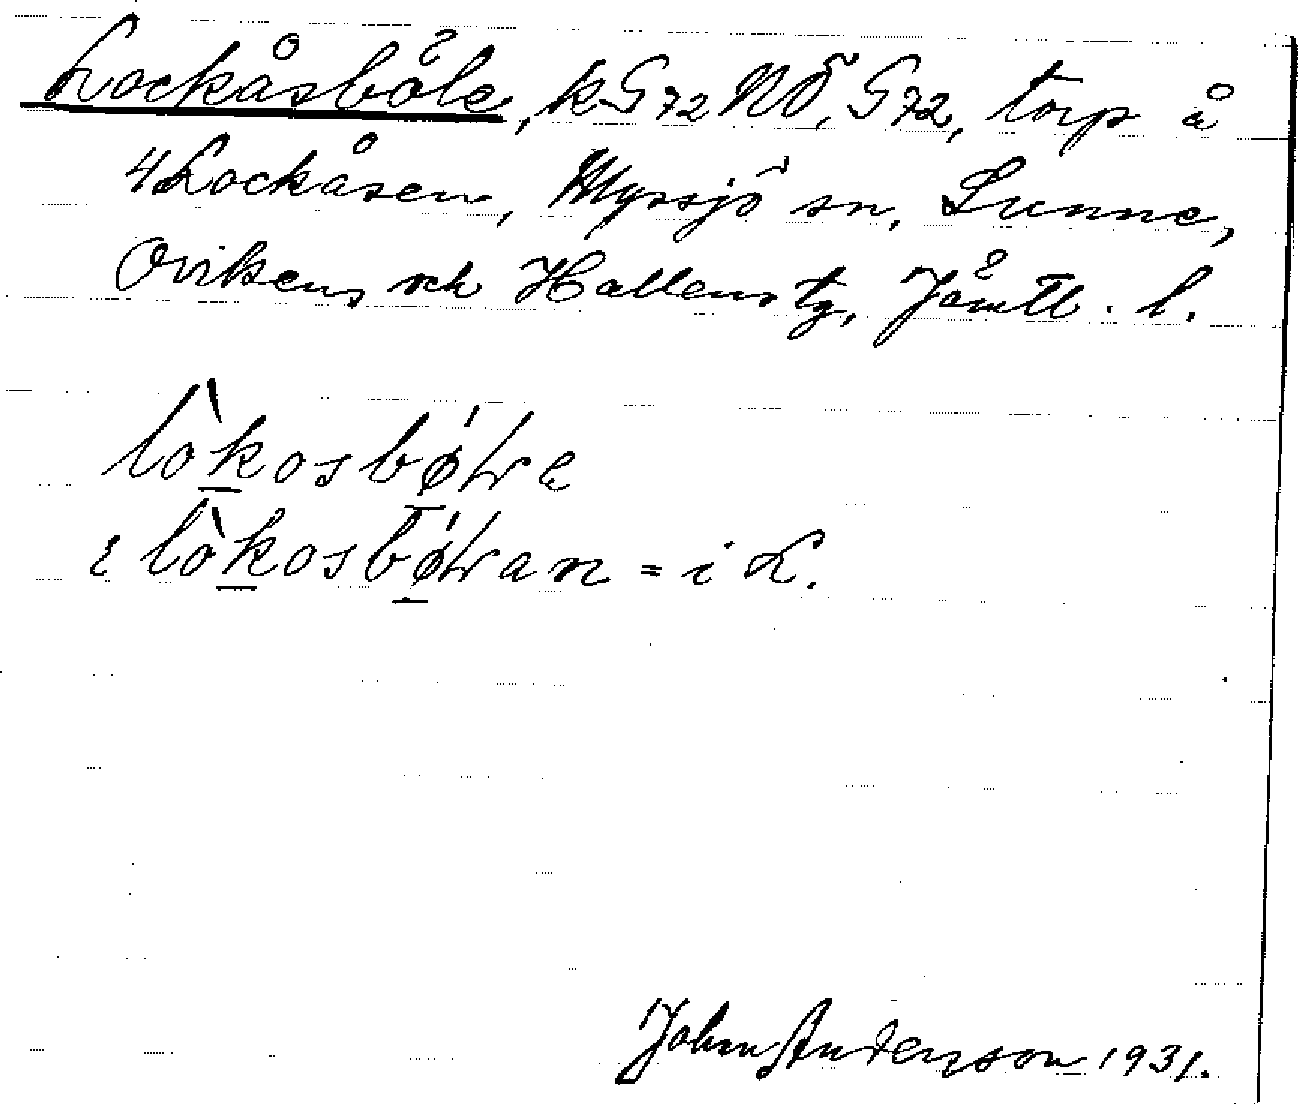 Lockåsböle, kG72NÖ, G72, torp å
4Lockåsen, Myssjö sn, Sunne,
Ovikens och Hallens tg, Jämtl. l.
lòkosbǿlwe
i lòkosbǿlwan = i L.
John Andersson 1931.